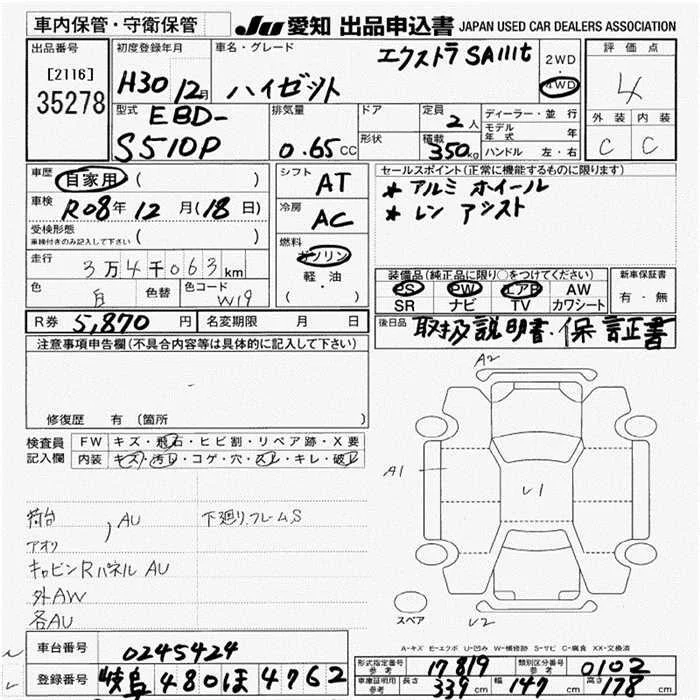 車内保管・守衛保管 JU 愛知 出品申込書 JAPAN USED CAR DEALERS ASSOCIATION
出品番号
[2116]
35278
初度登録年月
H30 12月
車名・グレード
エクストラ SAⅢt
ハイゼット
2WD
4WD
評価点
4
外装 内装
C C
型式
EBD-
S510P
排気量
0.65 CC
ドア
形状
定員
2人
積載
350kg
ディーラー・並行
モデル年式 年
ハンドル 左・右
車歴 自家用 ( )
車検 R08年 12月 (18日)
受検形態
車検付きのみ記入して下さい ( )
走行 3万4千063km
色 白 色替 色コード W19
シフト
AT
冷房
AC
燃料
ガソリン
軽・油
( )
セールスポイント(正常に機能するものに限ります)
* アルミ ホイール
* レン アシスト
装備品(純正品に限り○をつけてください)
PS PW エアB AW
SR ナビ TV カワシート
新車保証書
有・無
R券 5,870円 名変期限 月 日
後日品 取扱説明書・保証書
注意事項申告欄(不具合内容等は具体的に記入して下さい)
修復歴 有 (箇所 )
検査員
記入欄
FW キズ・飛石・ヒビ割・リペア跡・X要
内装 キズ・汚れ・コゲ・穴・スレ・キレ・破れ
荷台 , AU 下廻り.フレームS
アオリ
キャビンRパネル AU
外AW
各AU
A2
A1
U1
U2
スペア
A-キズ E-エクボ U-凹み W-補修跡 S-サビ C-腐食 XX-交換済
車台番号 0245424
登録番号 岐阜 480 ほ 4762
形式指定番号
参考
17819
類別区分番号
参考
0102
車庫証明用
参考
長さ 339cm 幅 147cm 高さ 178cm